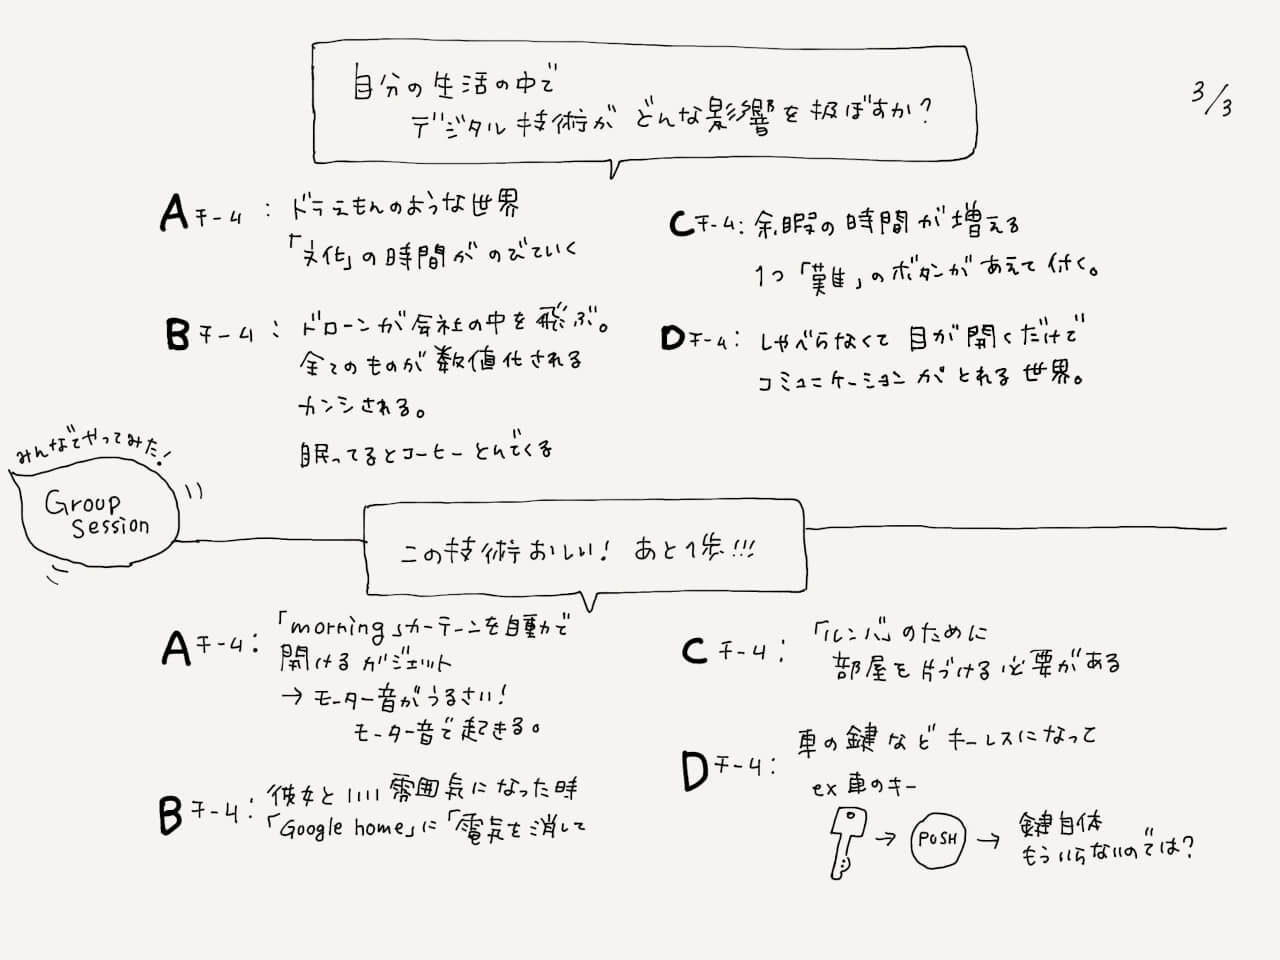 3/3
自分の生活の中で
デジタル技術がどんな影響を及ぼすか?
Aチーム: ドラえもんのような世界
「文化」の時間がのびていく
Bチーム: ドローンが会社の中を飛ぶ。
全てのものが数値化される
カンシされる。
眠ってるとコーヒーとんでくる
Cチーム: 余暇の時間が増える
1つ「難」のボタンがあえて付く。
Dチーム: しゃべらなくて目が開くだけで
コミュニケーションがとれる世界。
みんなでやってみた!
Group
Session
この技術おしい! あと1歩!!!
Aチーム: 「morning」カーテーンを自動で
開けるガジェット
→ モーター音がうるさい!
モーター音で起きる。
Bチーム: 彼女といい雰囲気になった時
「Google home」に「電気を消して
Cチーム: 「ルンバ」のために
部屋を片づける必要がある
Dチーム: 車の鍵などキーレスになって
ex 車のキー
→ PUSH → 鍵自体
もういらないのでは?